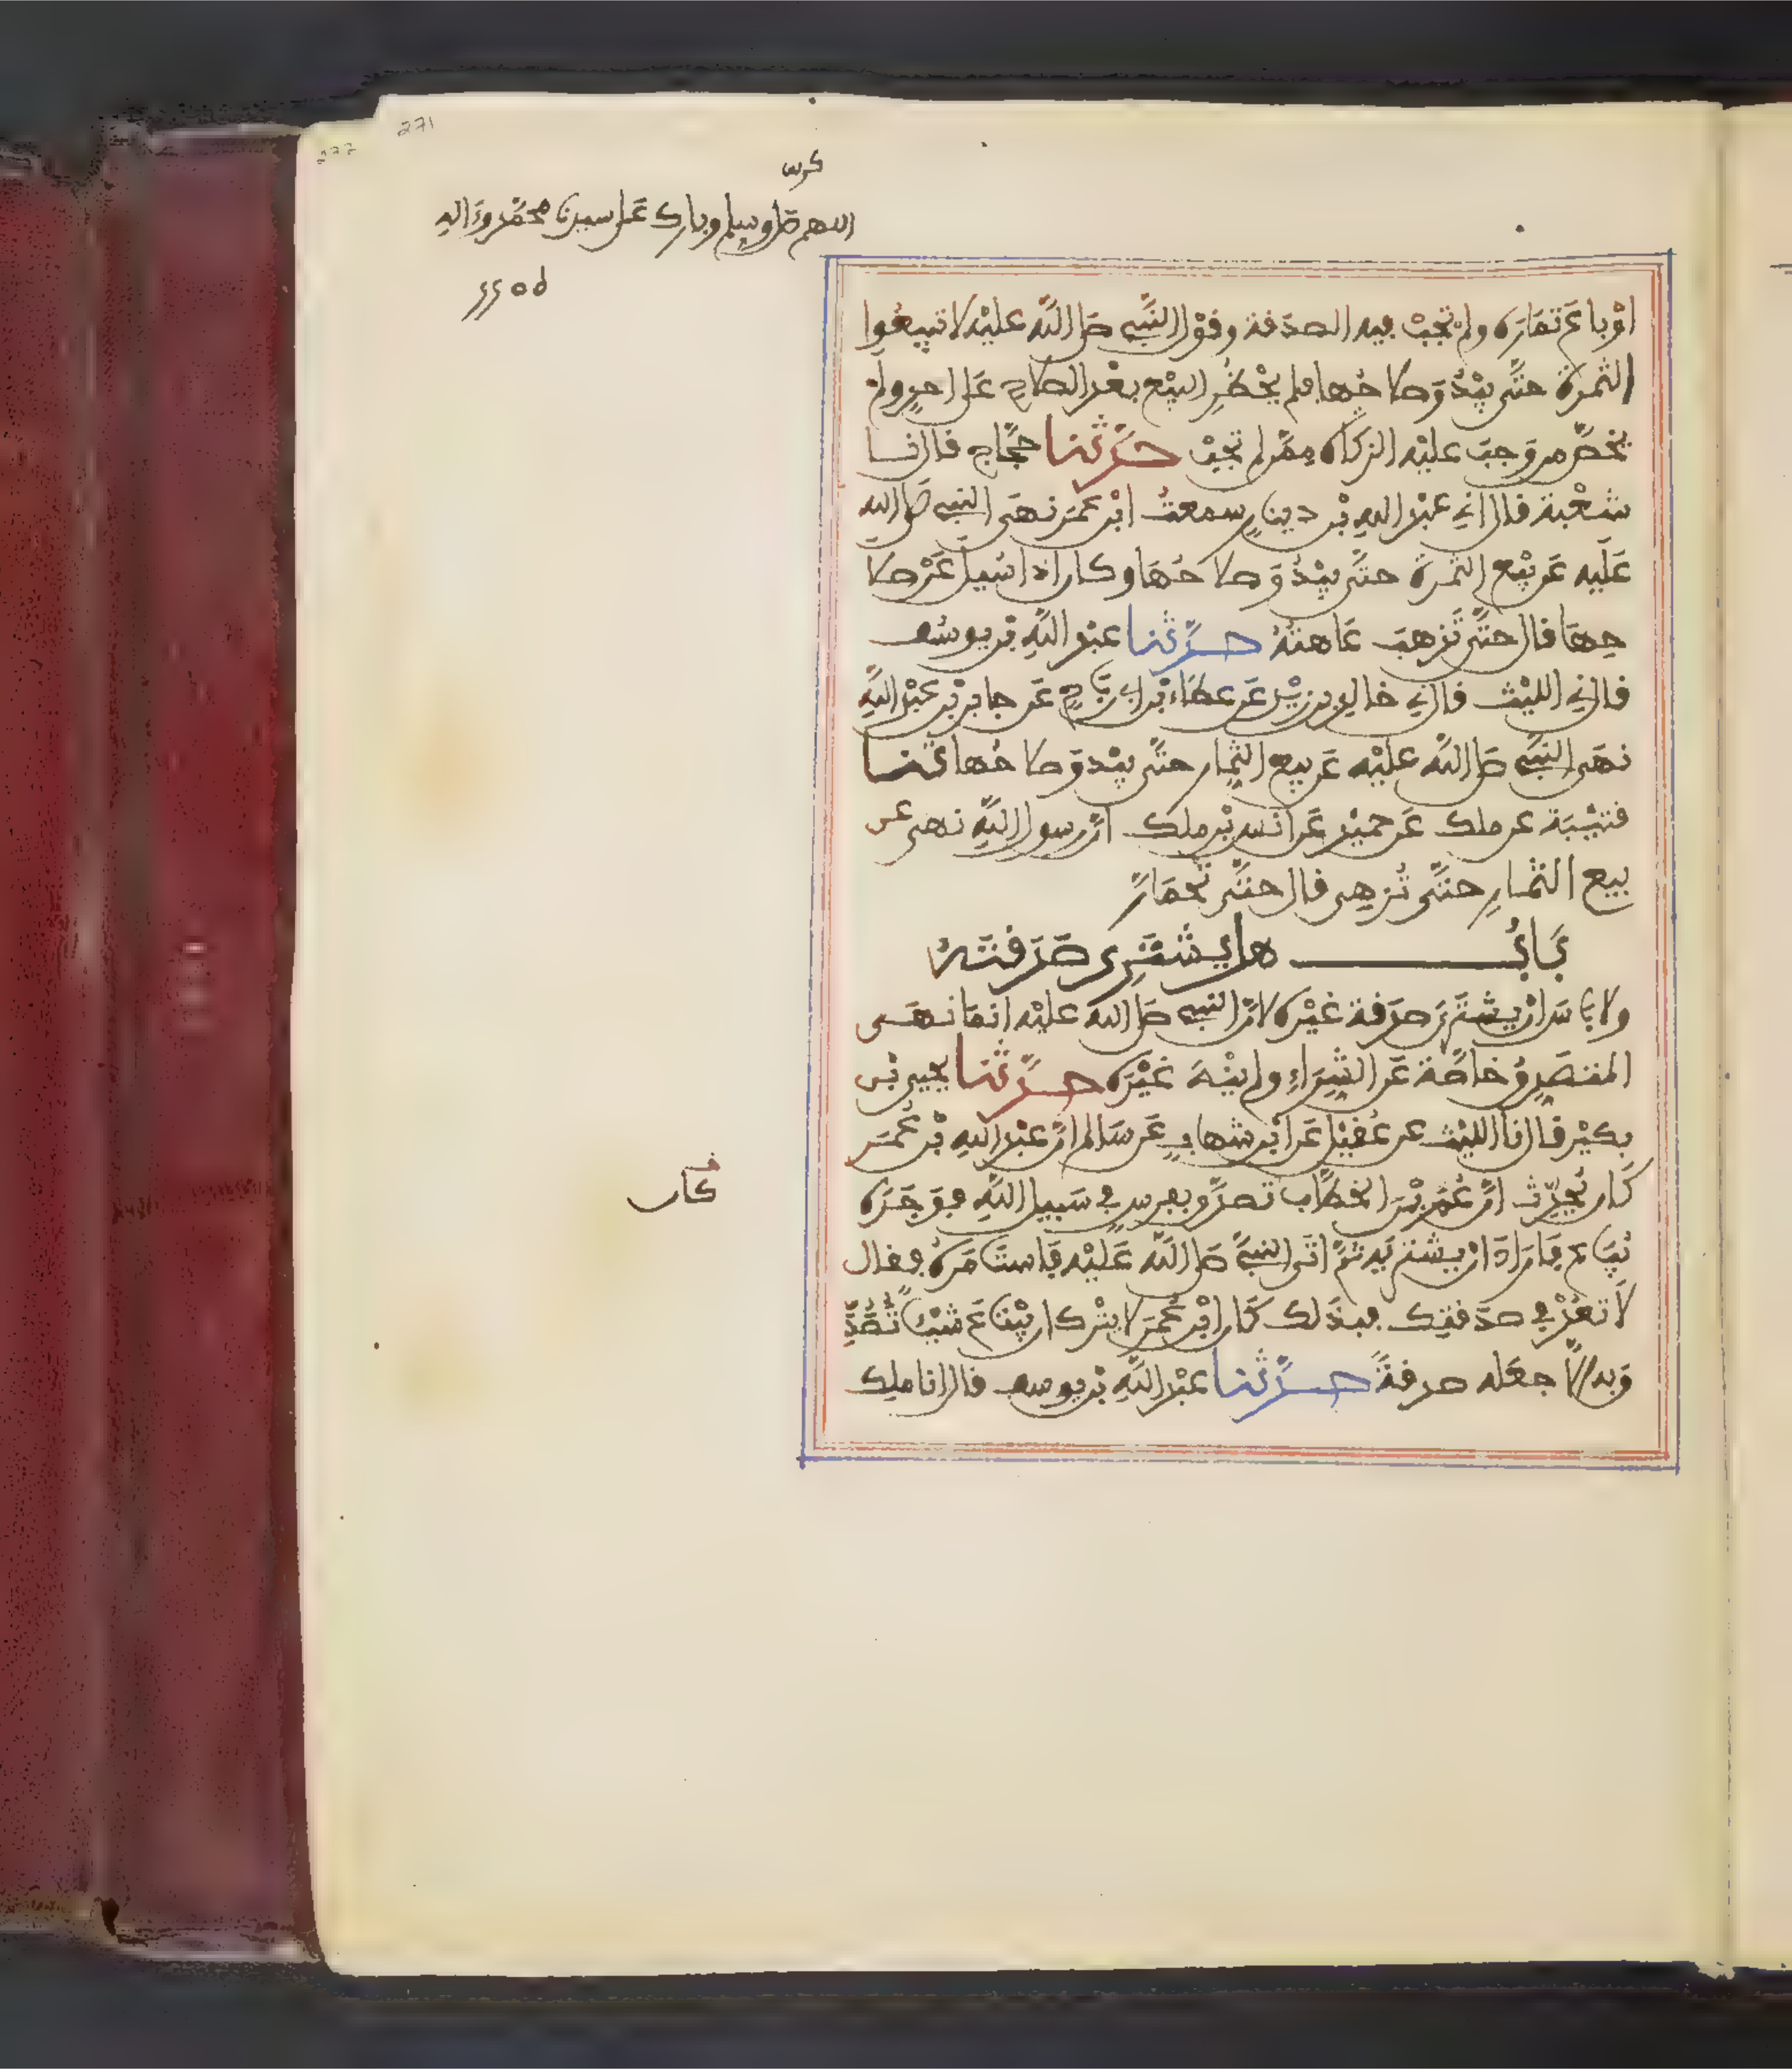 271
277
كرس
اللهم صل وسلم وبارك على سيدنا محمد وءاله
او باع ثماره ولم تجب فيه الصدقة وقول النبي صلى الله عليه لا تبيعوا
الثمرة حتى يبدو صلاحها فلم يحظر البيع بعد الصلاح على احد ولم
يخص من وجب عليه الزكاة ممن لم تجب حدثنا حجاج قال نا
شعبة قال اني عبد الله بن دينار سمعت ابن عمر نهى النبي صلى الله
عليه عن بيع الثمرة حتى يبدو صلاحها وكان اذا سيل عن صلا
حها قال حتى تذهب عاهته حدثنا عبد الله بن يوسف
قال ني الليث قال ني خالد بن يزيد عن عطاء بن ابي رباح عن جابر بن عبد الله
نهى النبي صلى الله عليه عن بيع الثمار حتى يبدو صلاحها ثنا
قتيبة عن ملك عن حميد عن انس بن ملك ان رسول الله نهى عن
بيع الثمار حتى تزهى قال حتى تحمار
باب هل يشتري صدقته
ولا باس ان يشتري صدقة غيره لان النبي صلى الله عليه انما نهى
المتصدق خاصة عن الشراء ولم ينه غيره حدثنا يحيى بن
بكير قال نا الليث عن عقيل عن ابن شهاب عن سالم ان عبد الله بن عمر
كان يحدث ان عمر بن الخطاب تصدق بفرس في سبيل الله فوجده
يباع فاراد ان يشتريه ثم اتى النبي صلى الله عليه فاستامره فقال
لا تعد في صدقتك فبذلك كان ابن عمر لا يترك ان يبتاع شيئا تصد
ق به الا جعله صدقة حدثنا عبد الله بن يوسف قال انا ملك
كان